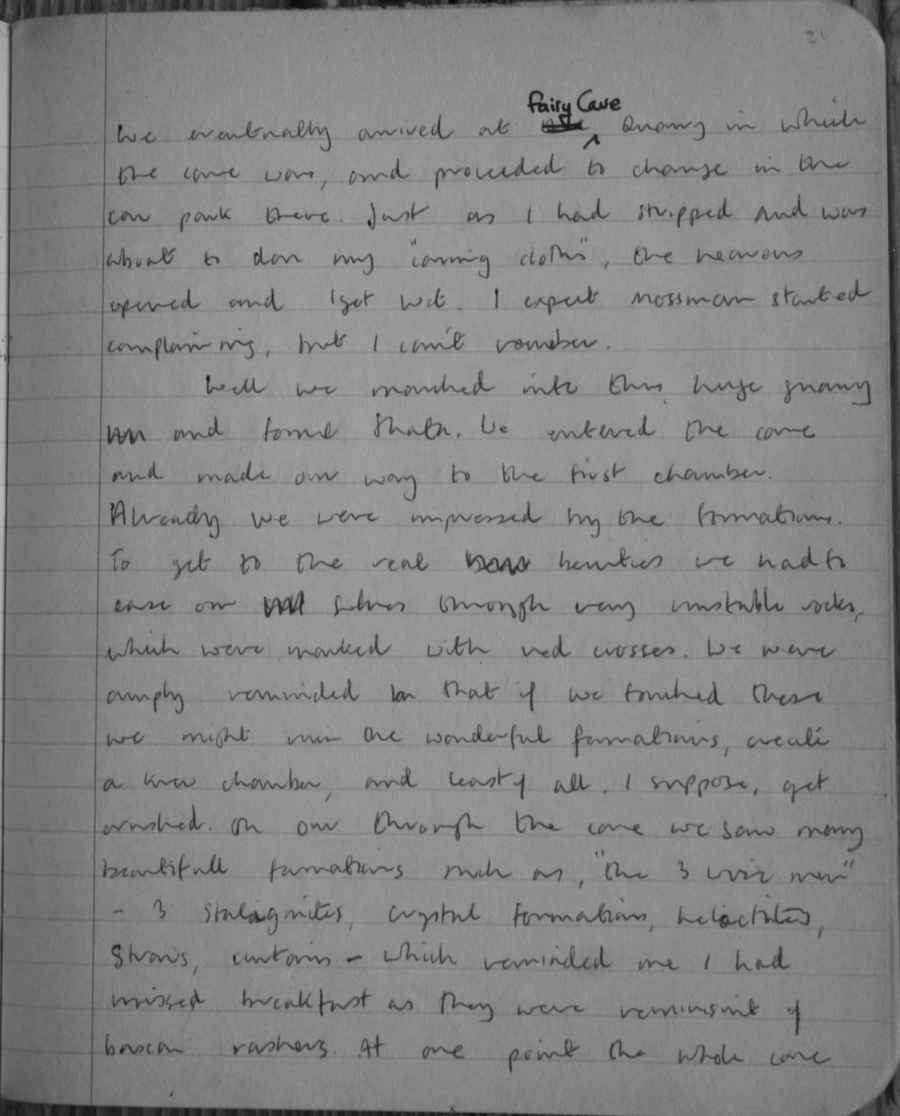 21
Fairy Cave
We eventually arrived at ^ Quarry in which
the cave was, and proceeded to change in the
car park there. Just as I had stripped and was
about to don my "caving cloths", the heavens
opened and I got wet. I expect Mossman started
complaining, but I can't rember.
Well we marched into this huge quarry
and found Shatn. We entered the cave
and made our way to the first chamber.
Already we were impressed by the formations.
To get to the real beauties we had to
ease our selves through very unstable rocks,
which were marked with red crosses. We were
amply reminded that if we touched these
we might ruin the wonderful formations, create
a new chamber, and least of all, I suppose, get
crushed. On our through the cave we saw many
beautifull formations such as, "the 3 wise men"
- 3 stalagmites, crystal formations, helactites,
Straws, curtains - which reminded me I had
missed breakfast as they were reminisint of
bacon rashers. At one point the whole cave